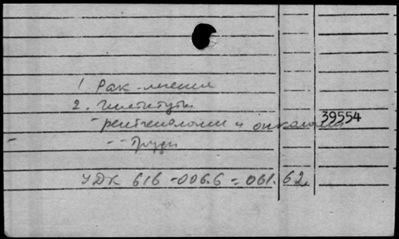 1. Рак - лечение
2. Институты
рентгенологии и онкологии
39554
- - Труды
УДК 616-006.6 = 061.62